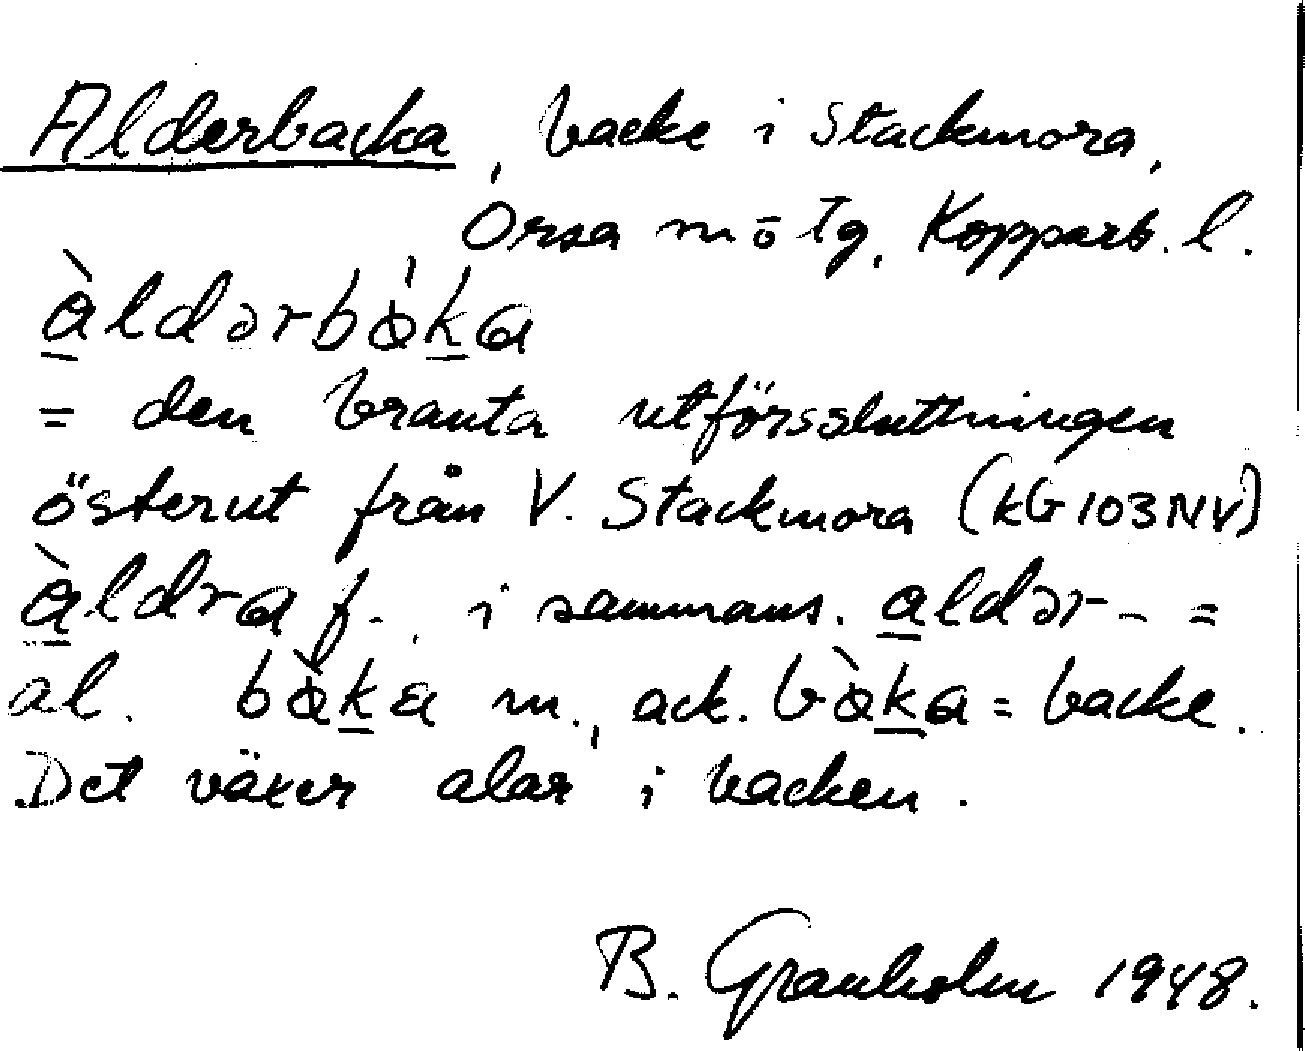 Alderbacka, backe i Stackmora,
Orsa m o tg, Kopparb. l.
àldərbàka
= den branta utförssluttningen
österut från V. Stackmora (KG103NV)
àldra f. i sammans. aldər- =
al. bàka m., ack. bàka = backe.
Det växer alar i backen.
B. Granholm 1948.